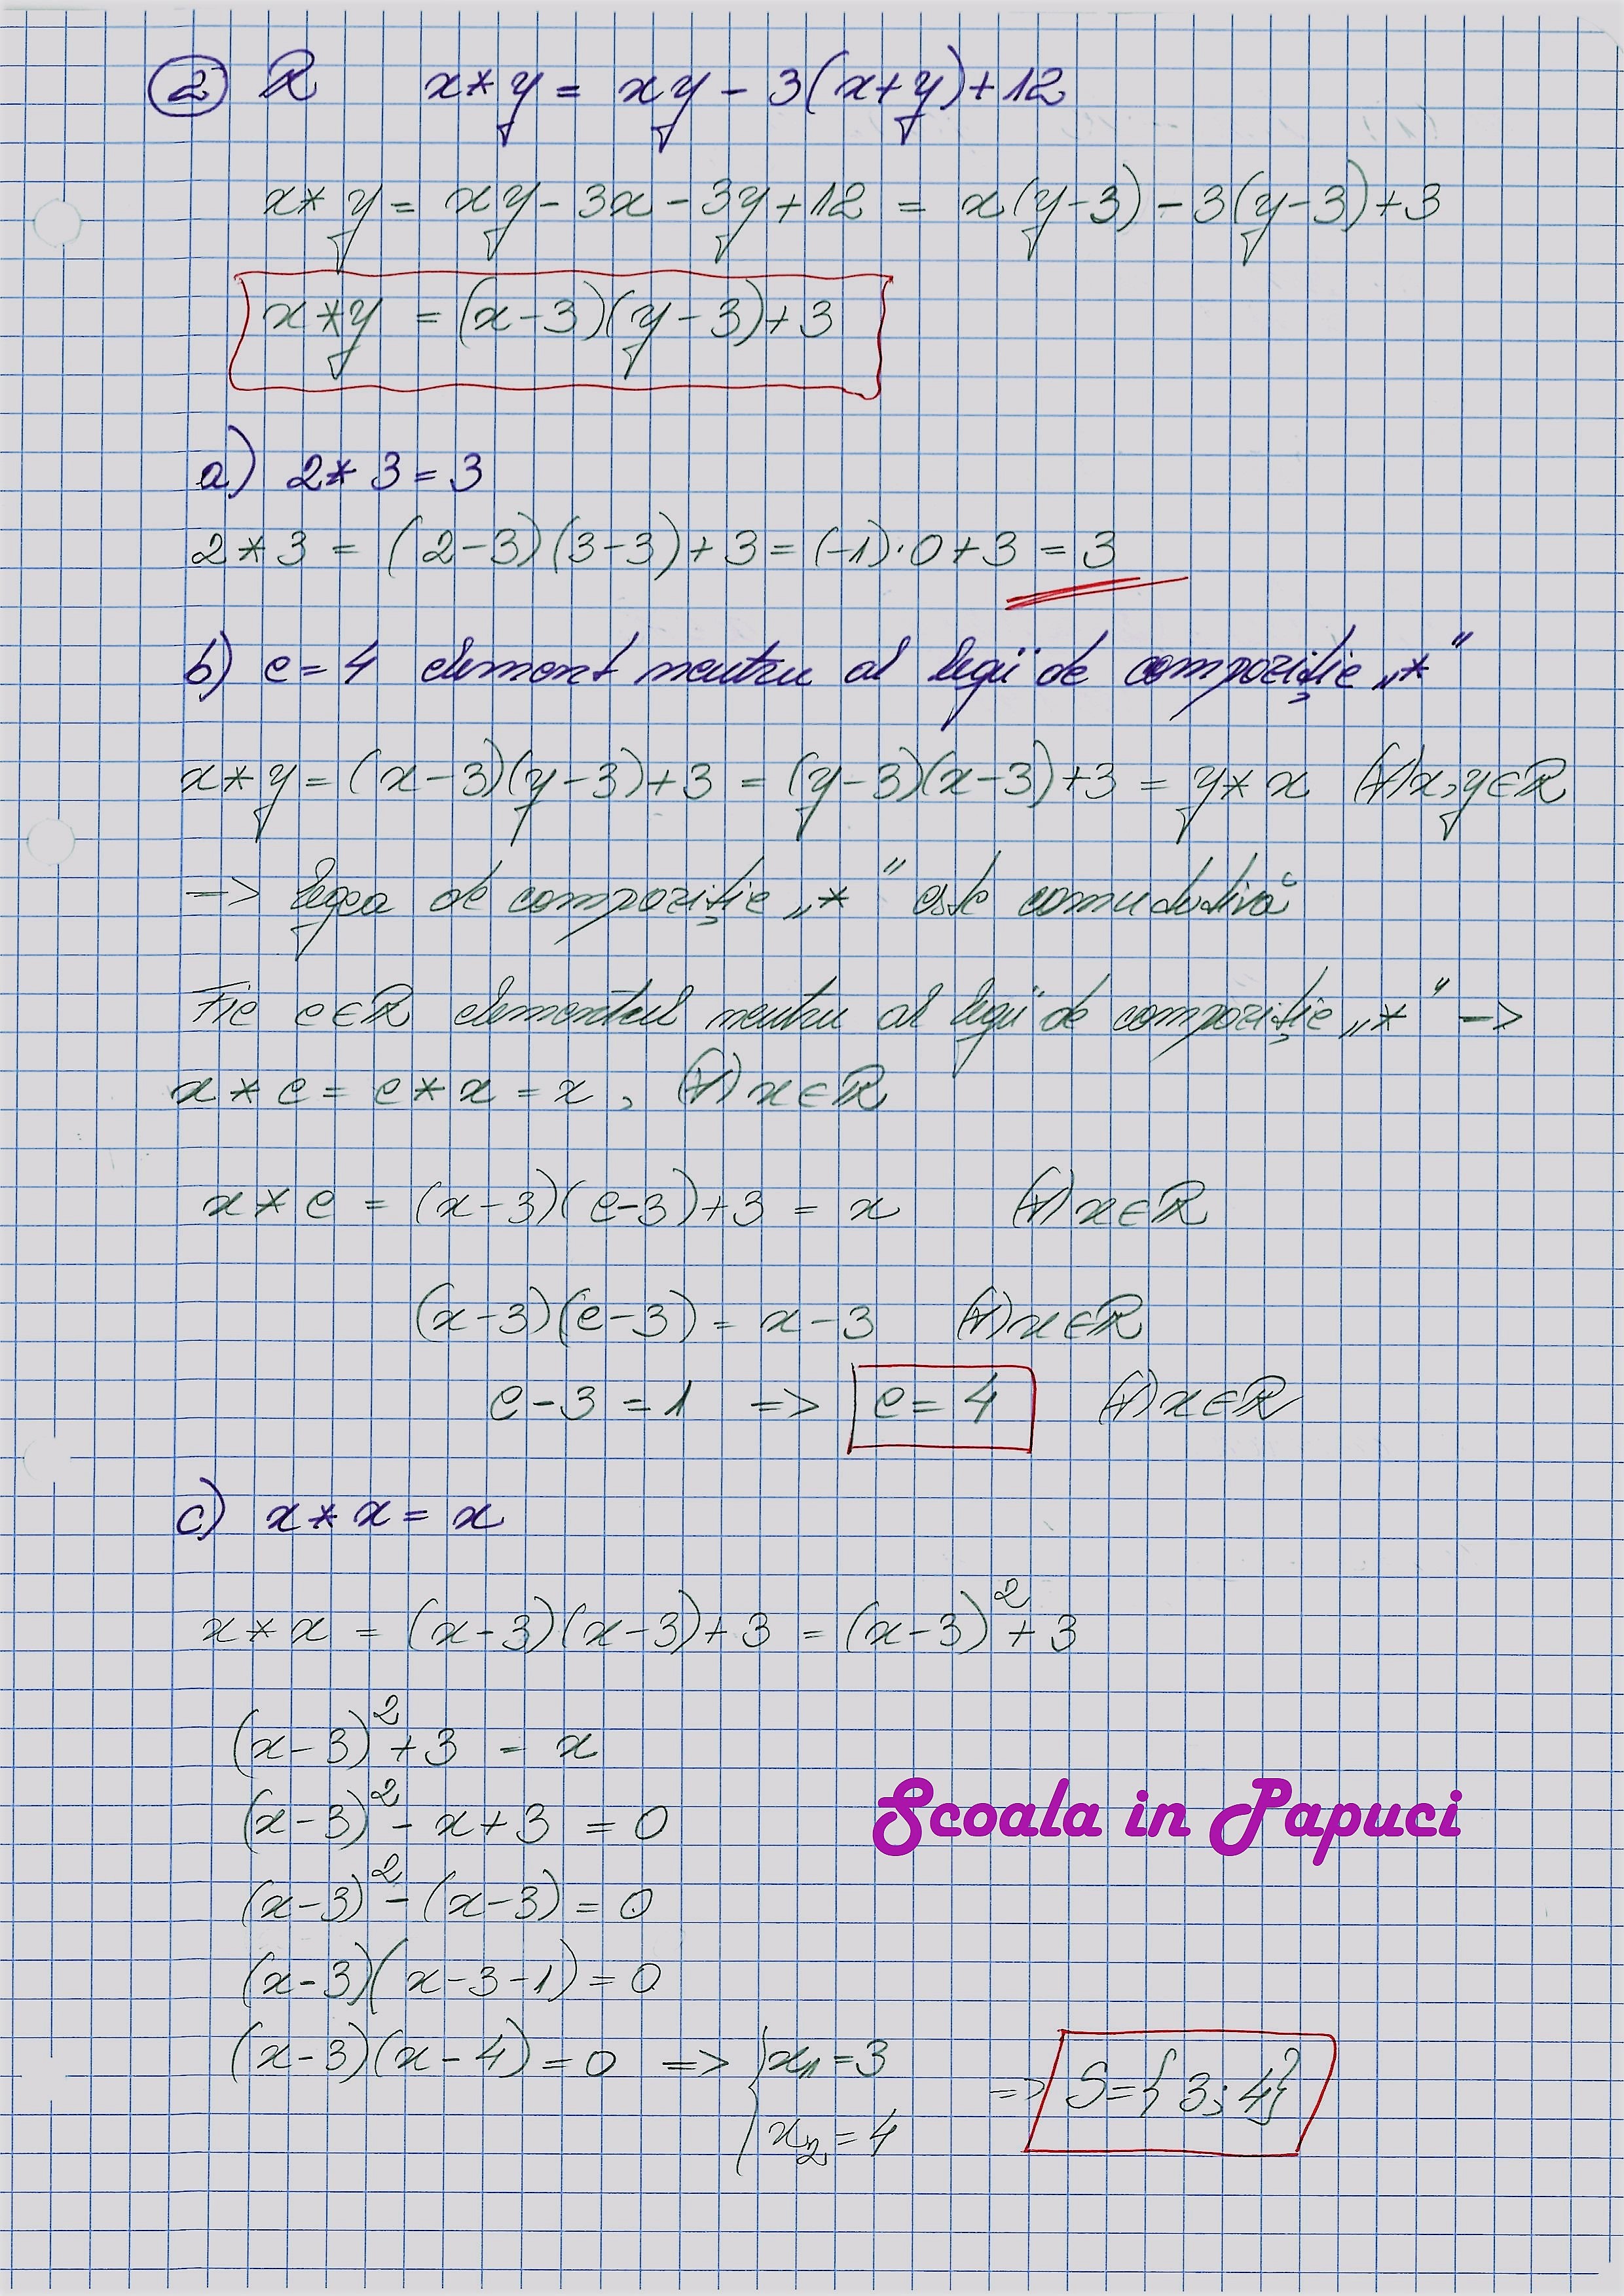 2) R x * y = xy - 3(x+y) + 12
x * y = xy - 3x - 3y + 12 = x(y-3) - 3(y-3) + 3
x * y = (x-3)(y-3) + 3
a) 2 * 3 = 3
2 * 3 = (2-3)(3-3) + 3 = (-1)·0 + 3 = 3
b) e = 4 element neutru al legii de compoziție „*"
x * y = (x-3)(y-3) + 3 = (y-3)(x-3) + 3 = y * x (∀) x, y ∈ R
=> legea de compoziție „*" este comutativă
Fie e ∈ R elementul neutru al legii de compoziție „*" =>
x * e = e * x = x, (∀) x ∈ R
x * e = (x-3)(e-3) + 3 = x (∀) x ∈ R
(x-3)(e-3) = x - 3 (∀) x ∈ R
e - 3 = 1 => e = 4 (∀) x ∈ R
c) x * x = x
x * x = (x-3)(x-3) + 3 = (x-3)² + 3
(x-3)² + 3 = x
(x-3)² - x + 3 = 0
Scoala in Papuci
(x-3)² - (x-3) = 0
(x-3)(x-3-1) = 0
(x-3)(x-4) = 0 => { x₁ = 3
x₂ = 4
=> S = {3; 4}